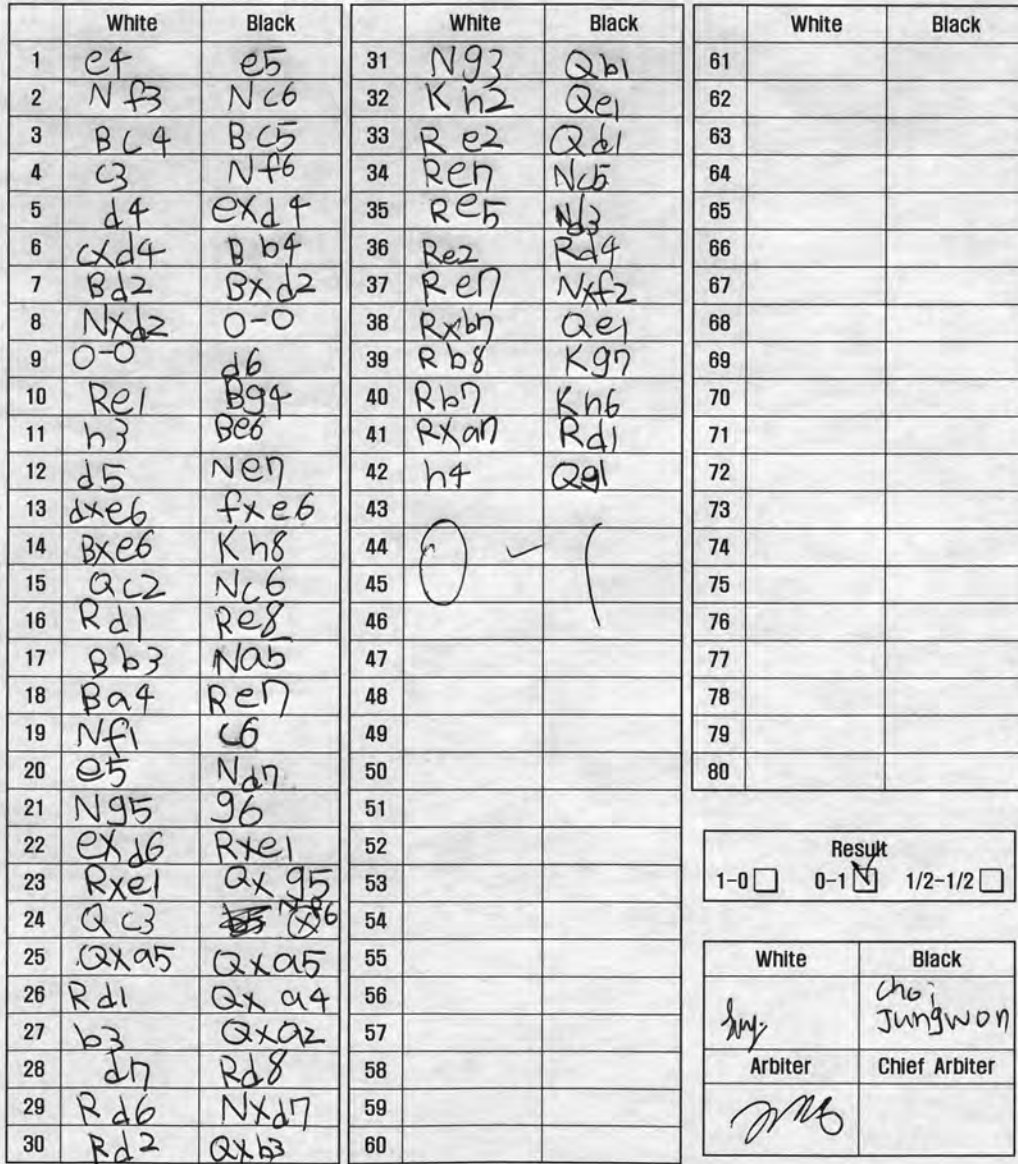 White Black
1 e4 e5
2 Nf3 Nc6
3 Bc4 Bc5
4 c3 Nf6
5 d4 exd4
6 cxd4 Bb4
7 Bd2 Bxd2
8 Nxd2 0-0
9 0-0 d6
10 Re1 Bg4
11 h3 Be6
12 d5 Ne7
13 dxe6 fxe6
14 Bxe6 Kh8
15 Qc2 Nc6
16 Rd1 Re8
17 Bb3 Na5
18 Ba4 Re7
19 Nf1 c6
20 e5 Nd7
21 Ng5 g6
22 exd6 Rxe1
23 Rxe1 Qxg5
24 Qc3 Nf6
25 Qxa5 Qxa5
26 Rd1 Qxa4
27 b3 Qxa2
28 d7 Rd8
29 Rd6 Nxd7
30 Rd2 Qxb3
White Black
31 Ng3 Qb1
32 Kh2 Qe1
33 Re2 Qd1
34 Re7 Nc5
35 Re5 Nd3
36 Re2 Rd4
37 Re7 Nxf2
38 Rxb7 Qe1
39 Rb8 Kg7
40 Rb7 Kh6
41 Rxa7 Rd1
42 h4 Qg1
43
44 0 - 1
45
46
47
48
49
50
51
52
53
54
55
56
57
58
59
60
White Black
61
62
63
64
65
66
67
68
69
70
71
72
73
74
75
76
77
78
79
80
Result
1-0 0-1 1/2-1/2
White Black
Choi
Jungwon
Arbiter Chief Arbiter